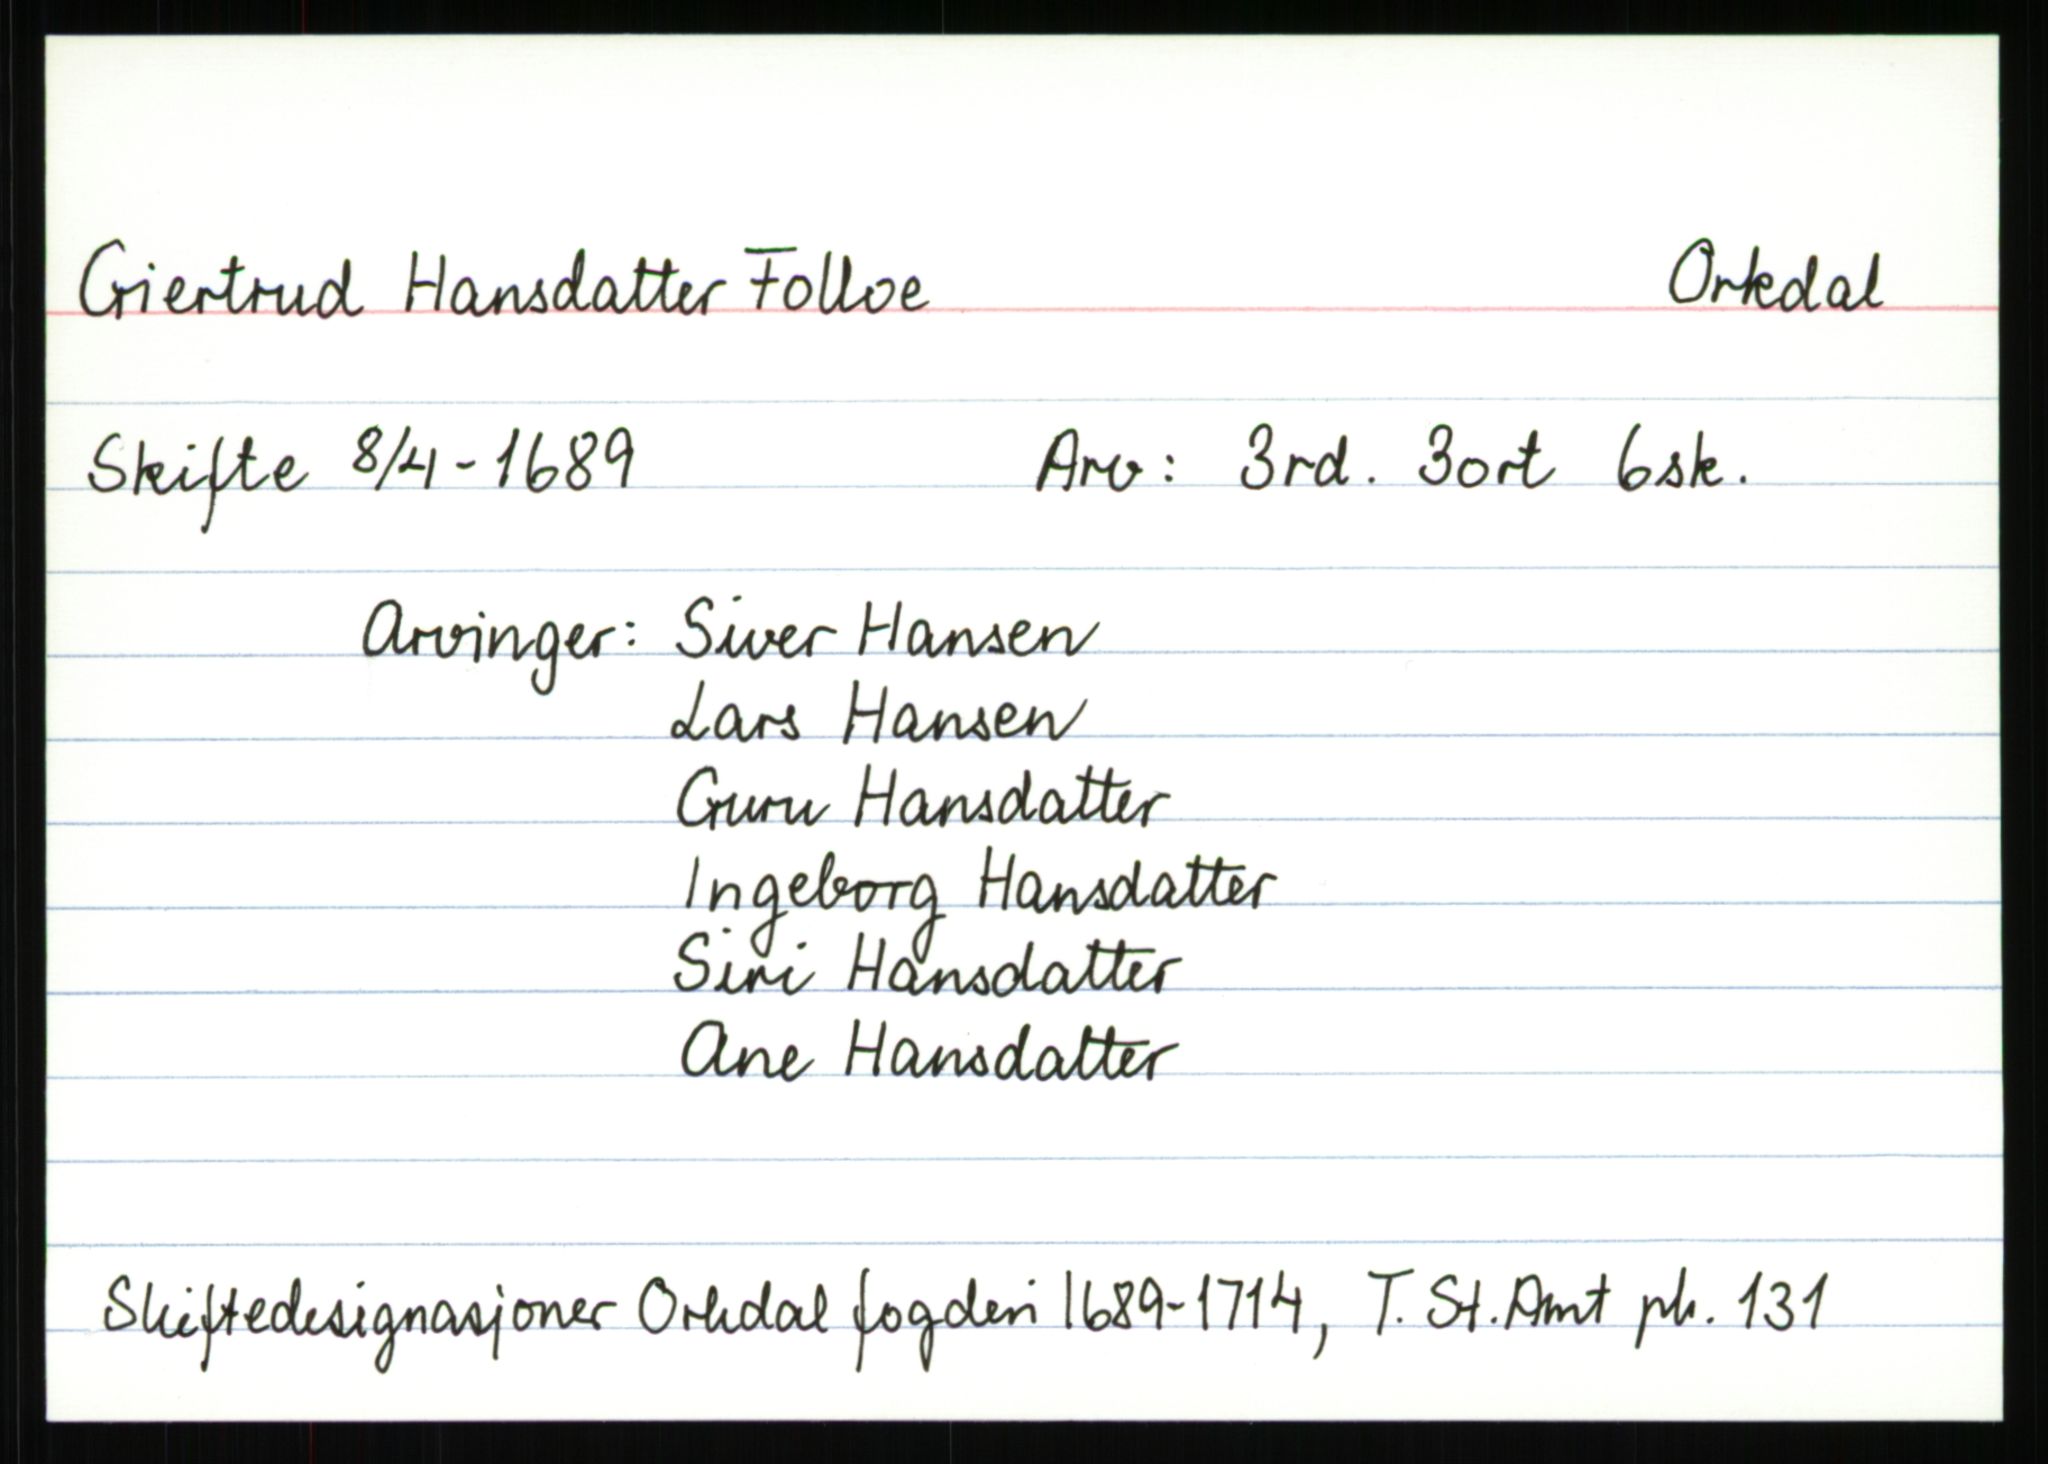 Giertrud Hansdatter Folloe Orkdal
Skifte 8/4-1689 Arv: 3rd. 3ort 6sk.
Arvinger: Siver Hansen
Lars Hansen
Guru Hansdatter
Ingeborg Hansdatter
Siri Hansdatter
Ane Hansdatter
Skiftedesignasjoner Orkdal fogderi 1689-1714, T. St. Amt pk. 131